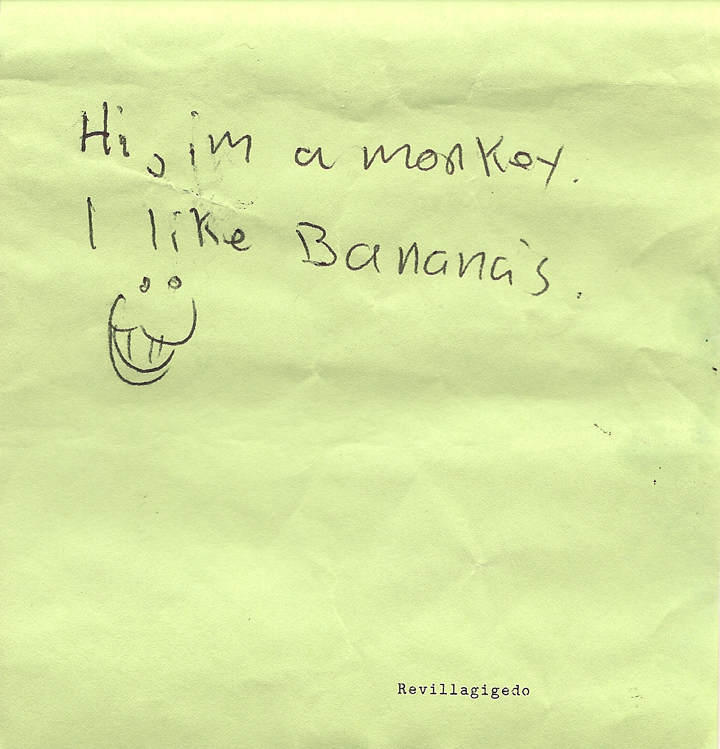 Hi, im a monkey.
I like Banana's.
Revillagigedo